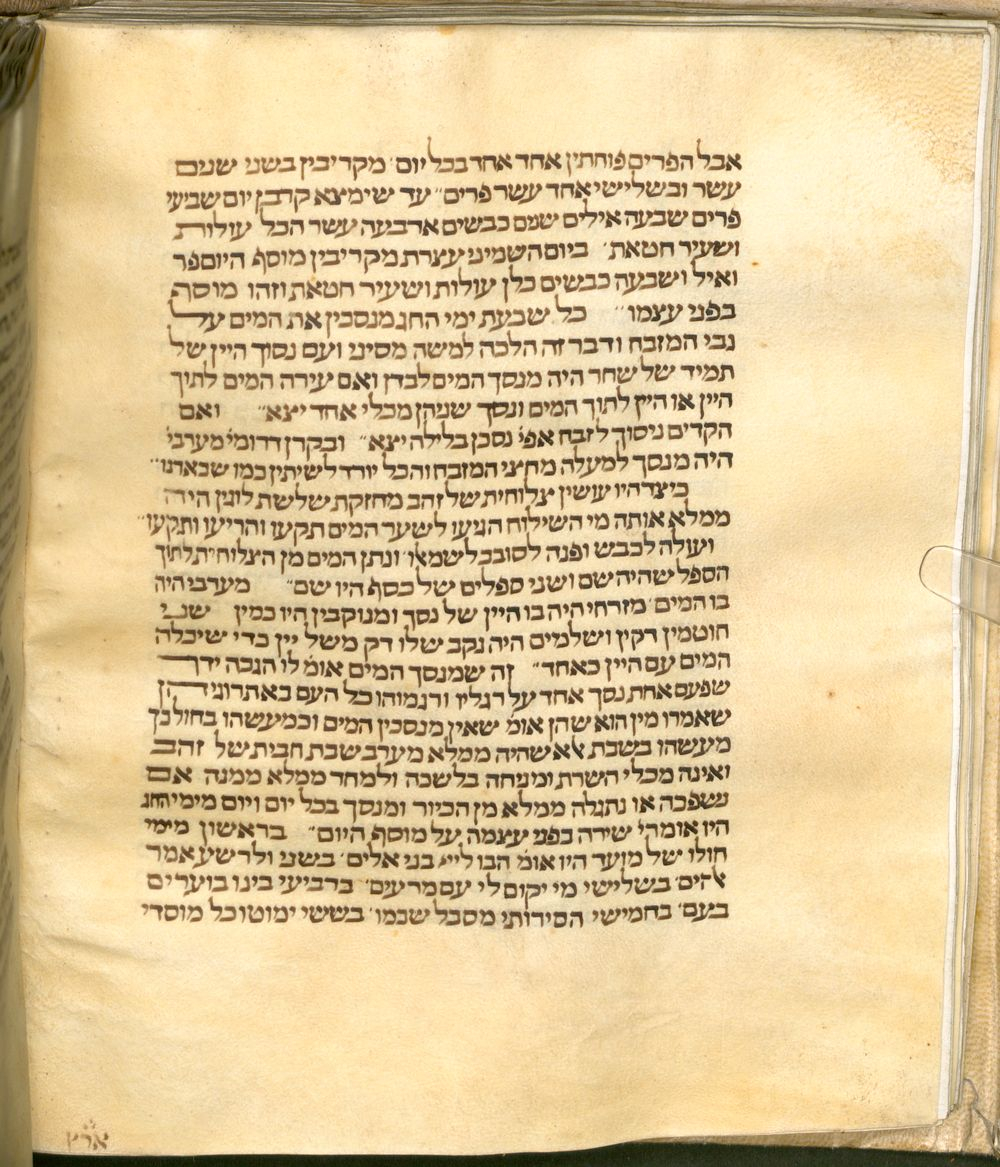 אבל הפרים פוחתין אחד אחד בכל יום׳ מקריבין בשני שנים
עשר ובשלישי אחד עשר פרים״ עד שימצא קרבן יום שביעי
פרים שבעה אילים שנים כבשים ארבעה עשר הכל עולות
ושעיר חטאת׳ ביום השמיני עצרת מקריבין מוסף היום פר
ואיל ושבעה כבשים כלן עולות ושעיר חטאת וזהו מוסף
בפני עצמו״ כל שבעת ימי החג מנסכין את המים על
גבי המזבח ודבר זה הלכה למשה מסיני ועם נסוך היין של
תמיד של שחר היה מנסך המים לבדן ואם עירה המים לתוך
היין או היין לתוך המים ונסך שניהן מכלי אחד יצא״ ואם
הקדים ניסוך לזבח אפי׳ נסכן בלילה יצא״ ובקרן דרומי׳ מערבי׳
היה מנסך למעלה מחצי המזבח והכל יורד לשיתין כמו שבארנו״
כיצד היו עושין צלוחית של זהב מחזקת שלשת לוגין היה
ממלא אותה מי השילוח הגיעו לשער המים תקעו והריעו ותקעו״
ועולה לכבש ופנה לסובב לשמאו׳ ונתן המים מן הצלוחית לתוך
הספל שהיה שם ושני ספלים של כסף היו שם״ מערבי היה
בו המים׳ מזרחי היה בו היין של נסך ומנוקבין היו כמין שני
חוטמין דקין ושלמים היה נקב שלו דק משל יין כדי שיכלה
המים עם היין כאחד״ זה שמנסך המים אומ׳ לו הגבה ידך
שפעם אחת נסך אחד על רגליו ורגמוהו כל העם באתרוגיהן
שאמרו מין הוא שהן אומ׳ שאין מנסכין המים וכמעשהו בחול כך
מעשהו בשבת אלא שהיה ממלא מערב שבת חבית של זהב
ואינה מכלי השרת ומניחה בלשכה ולמחר ממלא ממנה אם
נשפכה או נתגלה ממלא מן הכיור ומנסך בכל יום ויום מימי החג
היו אומרי׳ שירה בפני עצמה על מוסף היום״ בראשון מימי
חולו של מועד היו אומ׳ הבו לייי בני אלים׳ בשני ולרשע אמר
אלהים׳ בשלישי מי יקום לי עם מרעים׳ ברביעי בינו בוערים
בעם׳ בחמישי הסירותי מסבל שכמו׳ בששי ימוטו כל מוסדי
ארץ